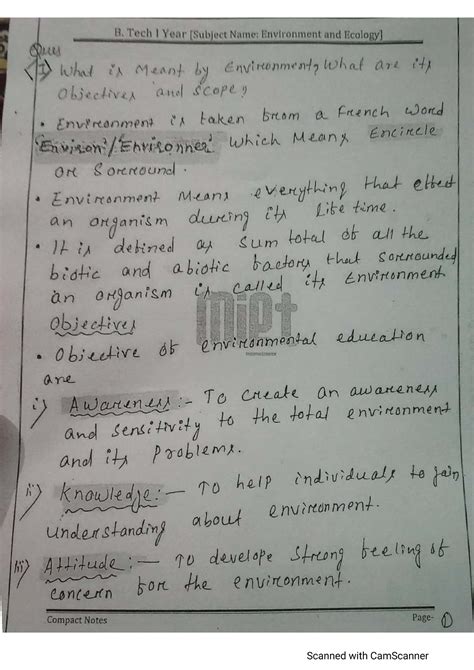 B. Tech I Year [Subject Name: Environment and Ecology]
Ques
(I) What is Meant by Environment, What are its
Objectives and Scope?
• Environment is taken from a French word
'Environ'/'Environner' which Means Encircle
or Sorround.
• Environment Means everything that effect
an organism during its life time.
• It is defined as sum total of all the
biotic and abiotic factors that sorrounded
an organism is called its Environment
Objectives
MiPt
• Objective of environmental education
are
i) Awareness:- To create an awareness
and sensitivity to the total environment
and its problems.
ii) Knowledge:- To help individuals to gain
understanding about environment.
iii) Attitude:- To develope strong feeling of
concern for the environment.
Compact Notes
Page- 1
Scanned with CamScanner